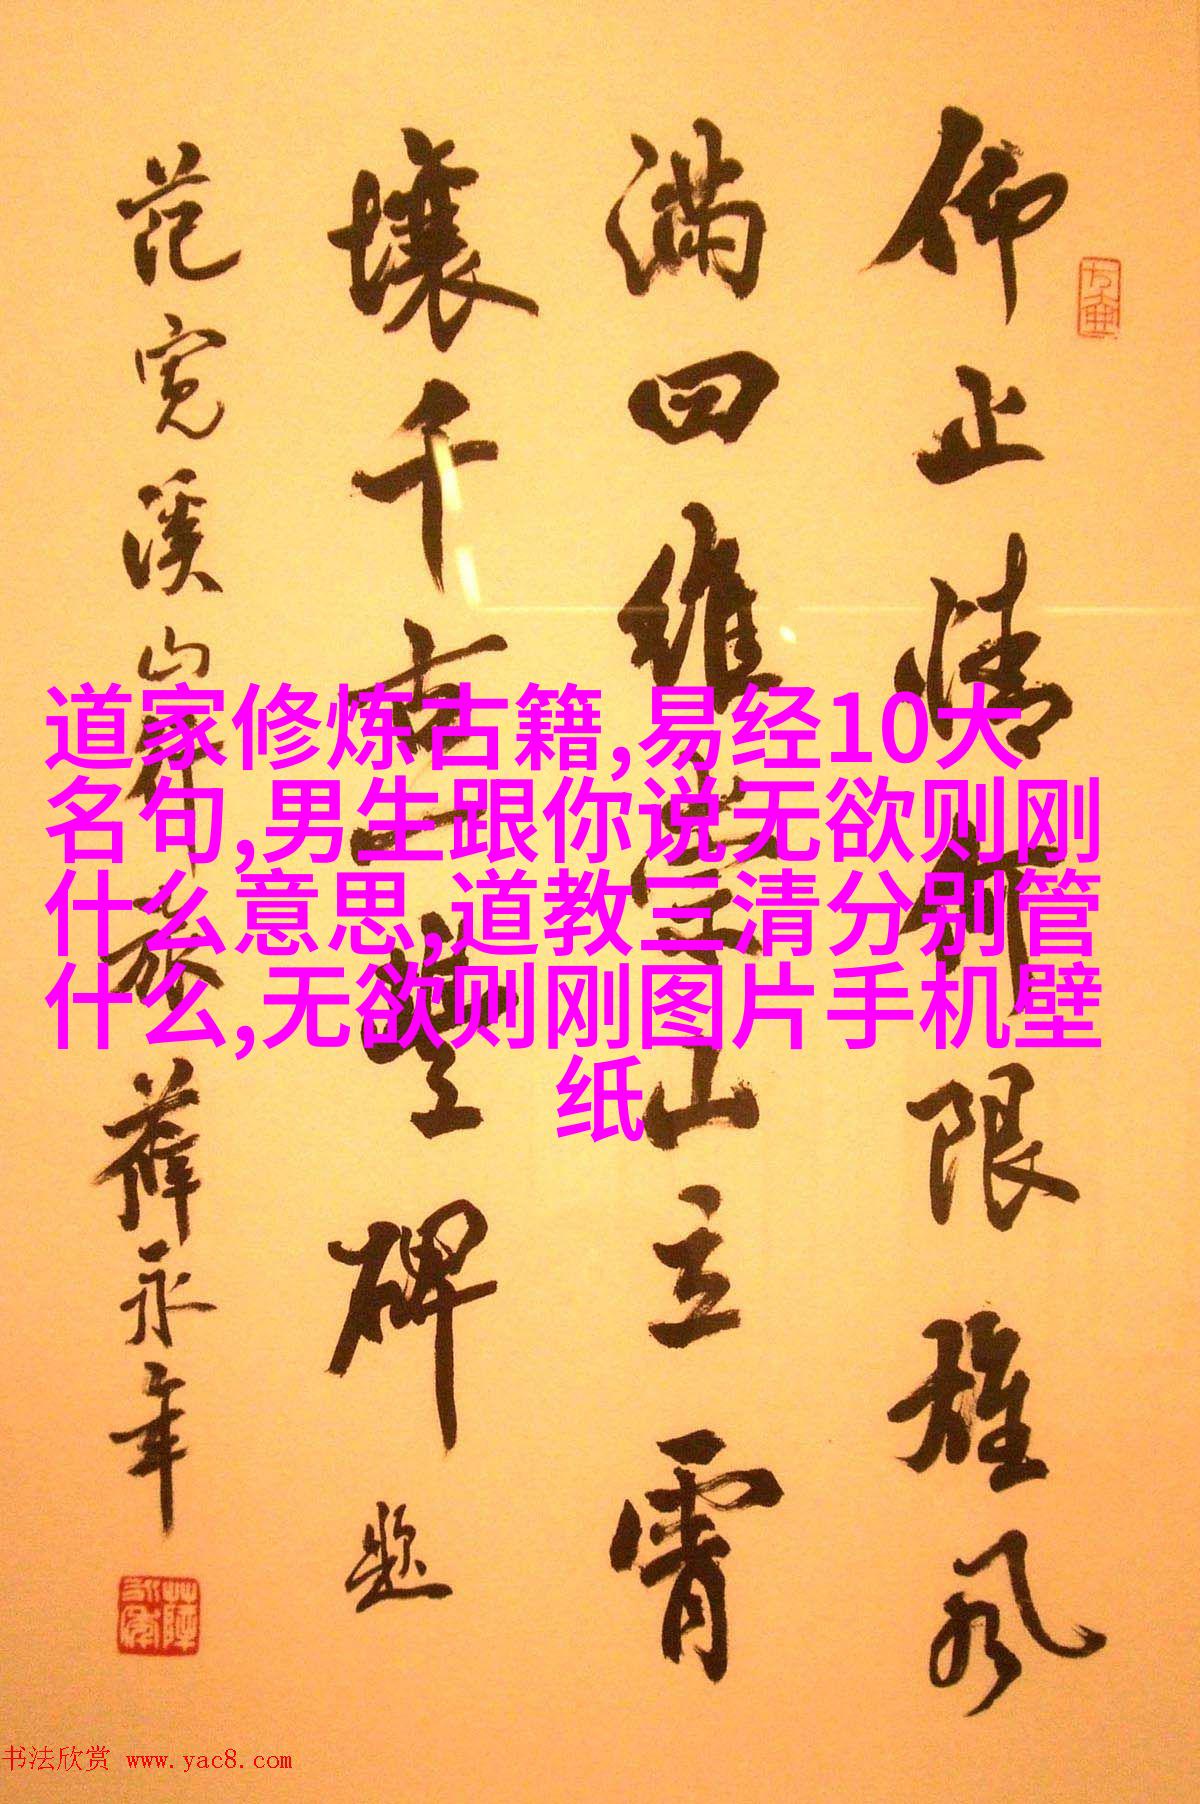 仰止情何限雄风
满四维崇山立霄
壤千古一丰碑
题
范宽溪山行旅 薛永年
道家修炼古籍,易经10大
名句,男生跟你说无欲则刚
什么意思,道教三清分别管
什么,无欲则刚图片手机壁
纸
书法欣赏 www.yac8.com